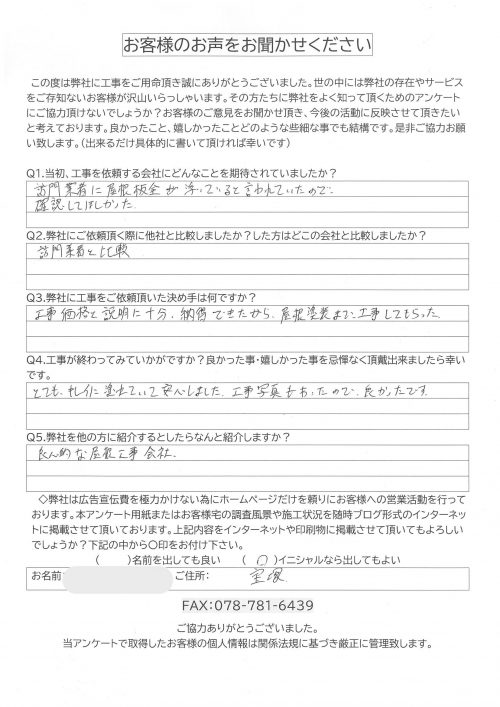 お客様のお声をお聞かせください
この度は弊社に工事をご用命頂き誠にありがとうございました。世の中には弊社の存在やサービス
をご存知ないお客様が沢山いらっしゃいます。その方たちに弊社をよく知って頂くためのアンケート
にご協力頂けないでしょうか?お客様のご意見をお聞かせ頂き、今後の活動に反映させて頂きたい
と考えております。良かったこと、嬉しかったことどのような些細な事でも結構です。是非ご協力お願
い致します。(出来るだけ具体的に書いて頂ければ幸いです)
Q1.当初、工事を依頼する会社にどんなことを期待されていましたか?
訪問業者に屋根板金が浮いていると言われていたので、
確認してほしかった
Q2.弊社にご依頼頂く際に他社と比較しましたか?した方はどこの会社と比較しましたか?
訪問業者と比較
Q3.弊社に工事をご依頼頂いた決め手は何ですか?
工事価格と説明に十分、納得できたから、屋根塗装まで工事してもらった
Q4.工事が終わってみていかがですか?良かった事・嬉しかった事を忌憚なく頂戴出来ましたら幸い
です。
とても、キレイに塗れていて安心しました、工事写真もあったので、良かったです
Q5.弊社を他の方に紹介するとしたらなんと紹介しますか?
良心的な屋根工事会社、
◇弊社は広告宣伝費を極力かけない為にホームページだけを頼りにお客様への営業活動を行って
おります。本アンケート用紙またはお客様宅の調査風景や施工状況を随時ブログ形式のインターネッ
トに掲載させて頂いております。上記内容をインターネットや印刷物に掲載させて頂いてもよろしい
でしょうか?下記の中から〇印をお付け下さい。
( )名前を出しても良い (〇)イニシャルなら出してもよい
お名前 ご住所: 宝塚
FAX:078-781-6439
ご協力ありがとうございました。
当アンケートで取得したお客様の個人情報は関係法規に基づき厳正に管理致します。